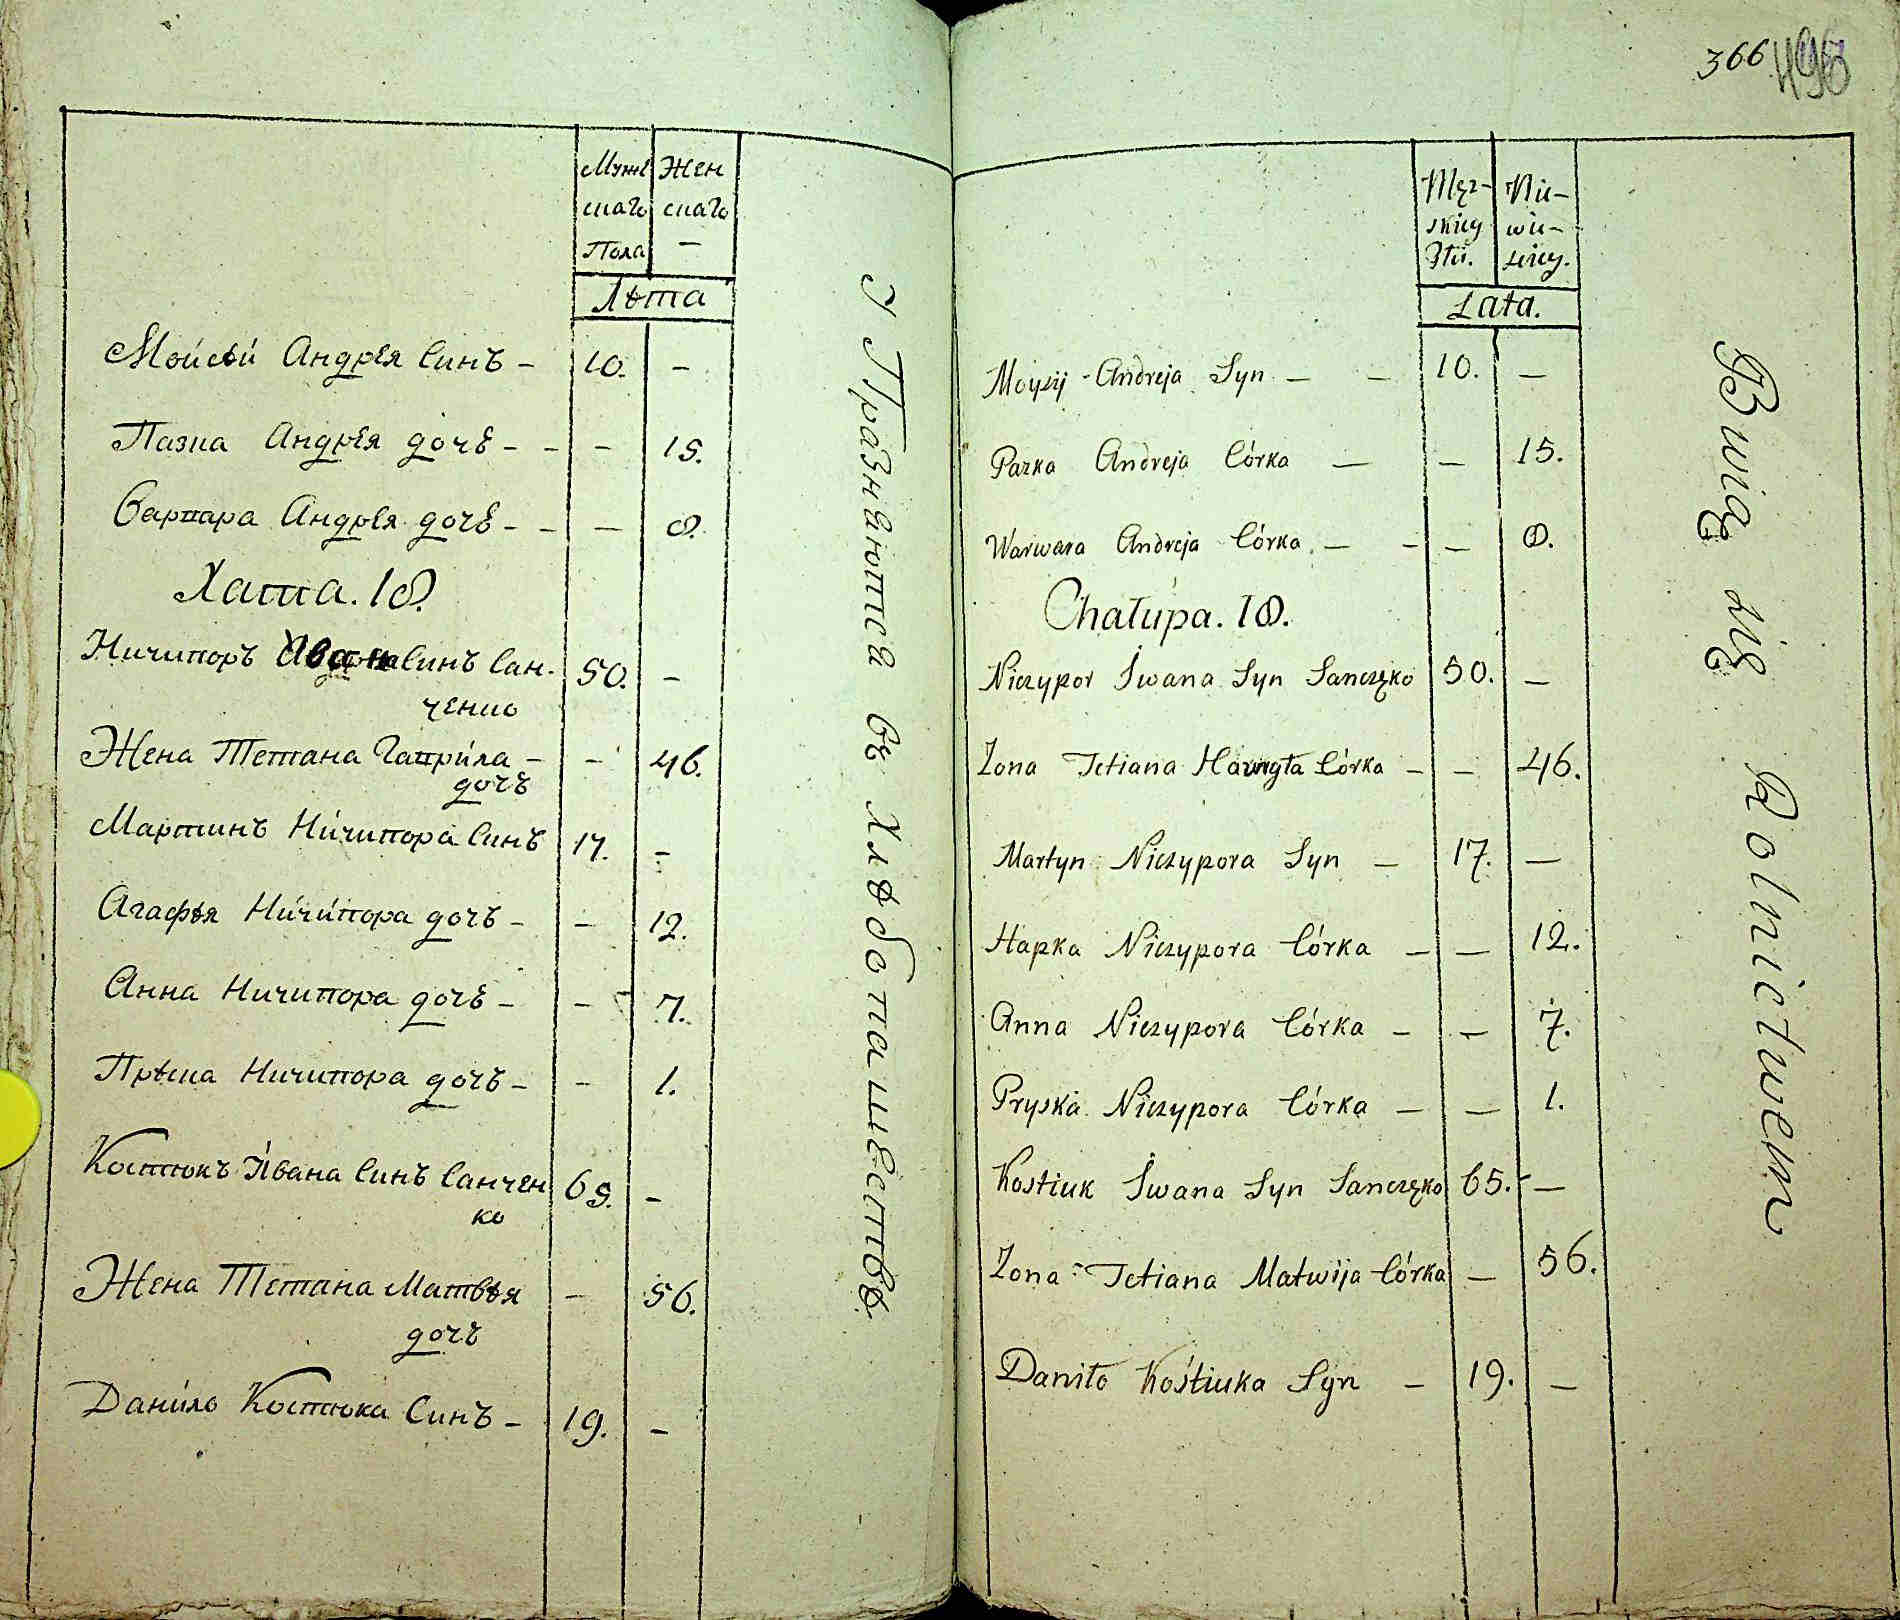 366
Муже Жен
скаго скаго
Пола —
Лѣта
Моисѣй Андрѣя Синъ — 10. —
Пазка Андрѣя дочь — — — 15.
Варвара Андрѣя дочь — — — 8.
Хата. 18.
Ничипоръ Ивана Синъ Сан- 50. —
ченко
Жена Тетяна Гаврила — — 46.
дочъ
Мартинъ Ничипора Синъ 17. —
Агафѣя Ничипора дочъ — — 12.
Анна Ничипора дочь — — 7.
Прѣска Ничипора дочъ — — 1.
Костюкъ Ивана Синъ Санчен 65. —
ко
Жена Тетяна Матвѣя — 56.
дочъ
Данило Костюка Синъ — 19. —
Упражняютса въ Хлѣбопашествѣ
Męz- Nie-
skiey wie-
Płci. sciey.
Lata.
Moysij Andreja Syn — — 10. —
Pazka Andreja Córka — — 15.
Warwara Andreja Córka — — — 8.
Chałupa. 18.
Niczypor Iwana Syn Sanczęko 50. —
Zona Tetiana Hawryła Córka — — 46.
Martyn Niczypora Syn — 17. —
Hapka Niczypora Córka — — 12.
Anna Niczypora Córka — — 7.
Pryska Niczypora Córka — — 1.
Kostiuk Iwana Syn Sanczęko 65. —
Zona Tetiana Matwija Córka — 56.
Daniło Kostiuka Syn — 19. —
Bawią się Rolnictwem